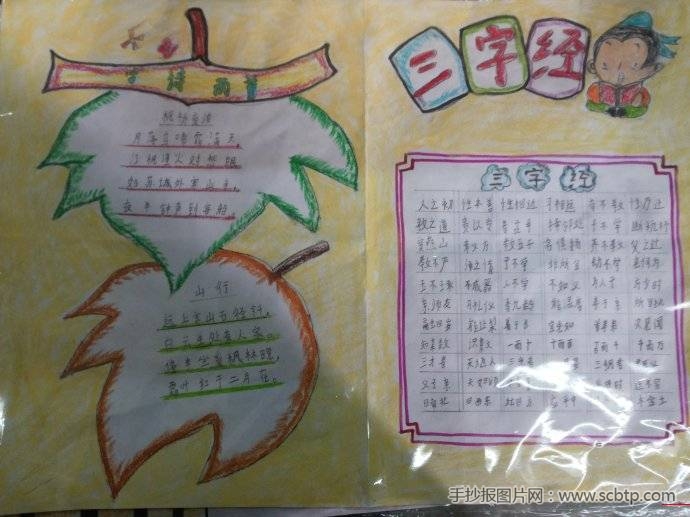 古诗两首
枫桥夜泊
月落乌啼霜满天,
江枫渔火对愁眠
姑苏城外寒山寺,
夜半钟声到客船。
山行
远上寒山石径斜,
白云生处有人家。
停车坐爱枫林晚,
霜叶红于二月花。
三字经
三字经
人之初 性本善 性相近 习相远 苟不教 性乃迁
教之道 贵以专 昔孟母 择邻处 子不学 断机杼
窦燕山 有义方 教五子 名俱扬 养不教 父之过
教不严 师之惰 子不学 非所宜 幼不学 老何为
玉不琢 不成器 人不学 不知义 为人子 方少时
亲师友 习礼仪 香九龄 能温席 孝于亲 所当执
融四岁 能让梨 弟于长 宜先知 首孝弟 次见闻
知某数 识某文 一而十 十而百 百而千 千而万
三才者 天地人 三光者 三纲者
父子亲 夫妇顺
曰南北 曰西东
手抄报图片网:www.scbtp.com